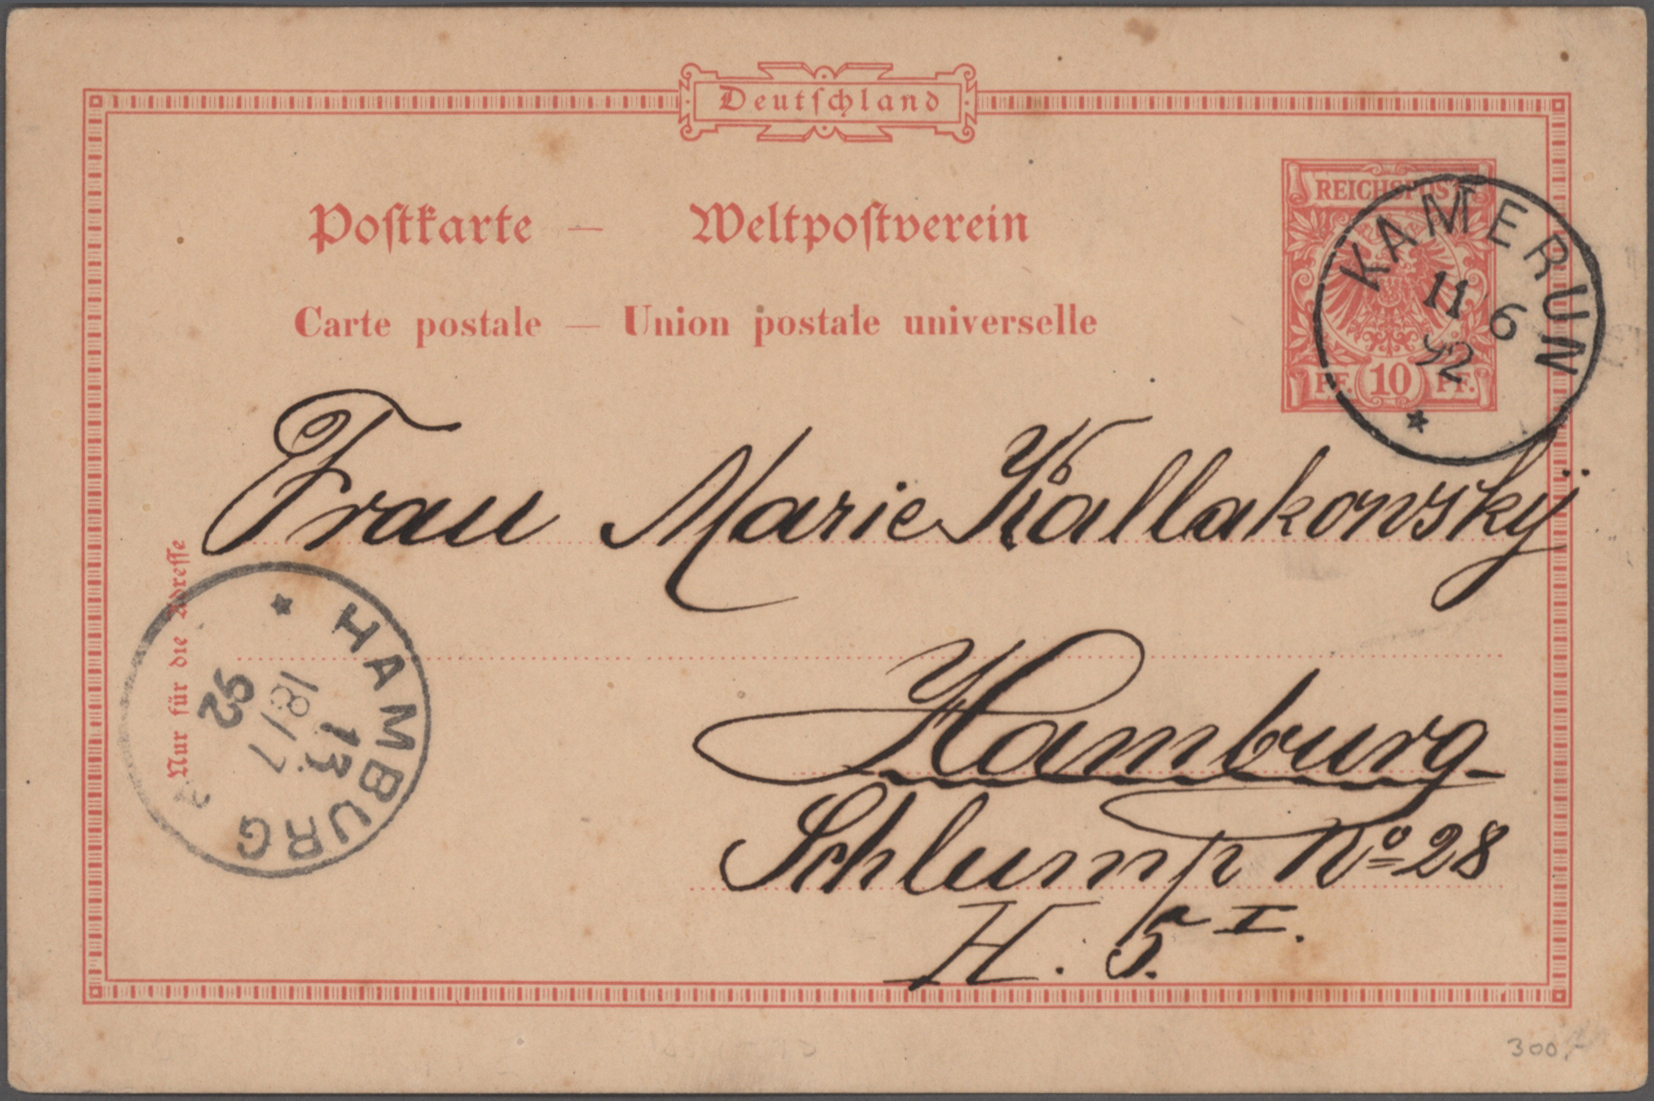 Deutschland
Postkarte — Weltpostverein
Carte postale — Union postale universelle
REICHSPOST
PF. 10 PF.
KAMERUN
11 6
92
Frau Marie Kallakowsky
Hamburg
Schlump No 28
H. 5. I.
Nur für die Adresse
HAMBURG
13
18/7
92
300,